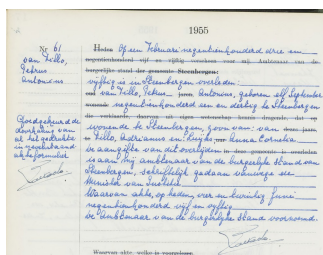 1955
Nr 61
van Tillo,
Petrus
Antonius
Goedgekeurd de
doorhaling van
al het gedrukte
in nevenstaand
akteformulier
Heden Op een Februari negentienhonderd drie en
negentienhonderd vijf en vijftig verscheen voor mij, Ambtenaar van de
burgerlijke stand der gemeente Steenbergen:
vijftig is in Steenbergen overleden:
van Tillo, Petrus Antonius, geboren elf September
negentienhonderd een en dertig te Steenbergen
die verklaarde, daartoe eigen wetenschap kennis dragende, dat op
wonende te Steenbergen, zoon van: van
Tillo, Adrianus en Anna Cornelia.
De aangifte van dit overlijden is
is aan mij ambtenaar van de burgerlijke stand van
Steenbergen, schriftelijk gedaan vanwege de
Minister van Justitie.
Waarvan akte, op heden, vier en twintig Juni
negentienhonderd vijf en vijftig.
De Ambtenaar van de burgerlijke Stand voornoemd.
Waarvan akte, welke is voorgelezen